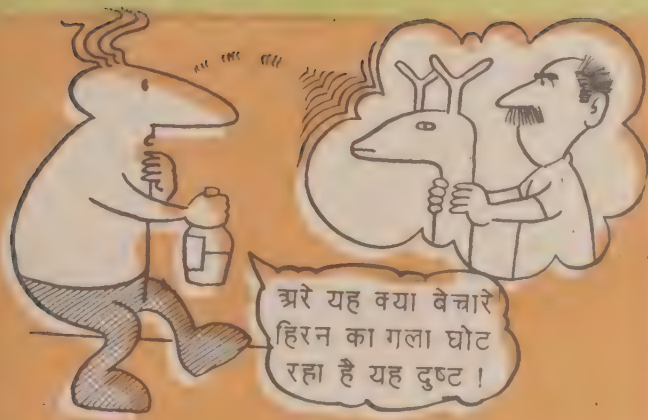 अरे यह क्या बेचारे
हिरन का गला घोट
रहा है यह दुष्ट !